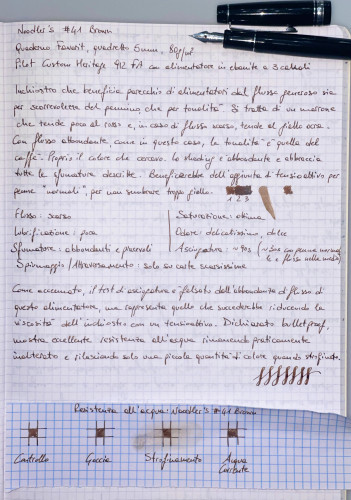 Noodler's #41 Brown
Quaderno Favorit, quadretto 5mm, 80g/m²
Pilot Custom Heritage 912 FA con alimentatore in ebanite a 3 canali
Inchiostro che beneficia parecchio di alimentatori dal flusso generoso sia
per scorrevolezza del pennino che per tonalità. Si tratta di un marrone
che tende poco al rosso e, in caso di flusso scarso, tende al giallo ocra.
Con flusso abbondante, come in questo caso, la tonalità è quella del
caffè. Proprio il colore che cercavo. Lo shading è abbondante e abbraccia
tutte le sfumature descritte. Beneficerebbe dell'aggiunta di tensioattivo per
penne "normali", per non sembrare troppo giallo.
1 2 3
Flusso: scarso
Lubrificazione: poca
Sfumature: abbondanti e piacevoli
Saturazione: ottima
Odore: delicatissimo, dolce
Asciugatura: ~40s (~30s con penne normali,
e flusso nella media)
Spiumaggio/Attraversamento: solo su carte scarsissime
Come accennato, il test di asciugatura è falsato dall'abbondanza di flusso di
questo alimentatore, ma rappresenta quello che succederebbe riducendo la
viscosità dell'inchiostro con un tensioattivo. Dichiarato bulletproof,
mostra eccellente resistenza all'acqua rimanendo praticamente
inalterato e rilasciando solo una piccola quantità di colore quando strofinato.
Resistenza all'acqua: Noodler's #41 Brown
Controllo
Goccia
Strofinamento
Acqua
corrente